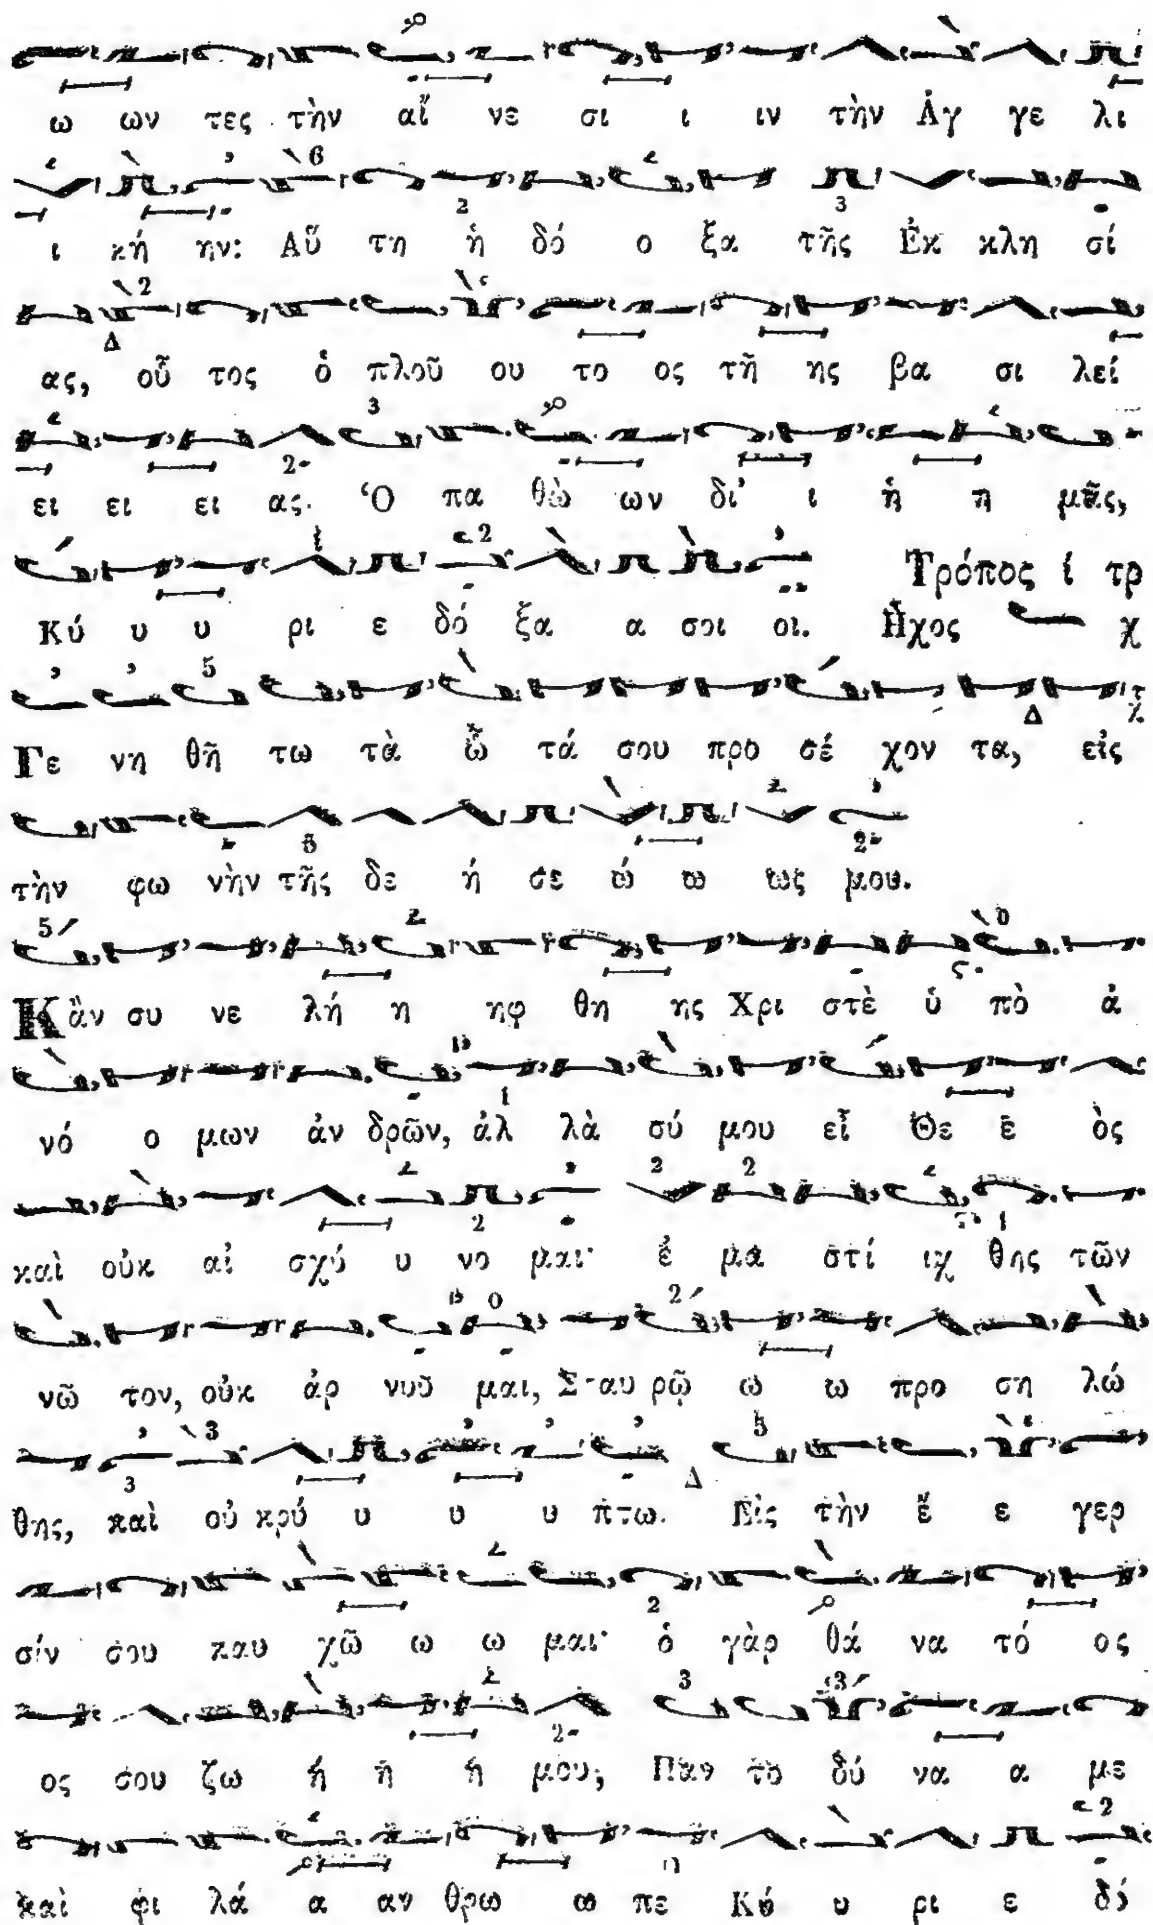 ω ων τες τὴν αἴ νε σι ι ιν τὴν Ἀγ γε λι
ι κή ην: Αὕ τη ἡ δό ο ξα τῆς Ἐκ κλη σί
ας, οὗ τος ὁ πλοῦ ου το ος τῆ ης βα σι λεί
ει ει ει ας. Ὁ πα θὼ ων δι' ι ἡ η μᾶς,
Τρόπος ί τρ
Κύ υ υ ρι ε δό ξα α σοι οι. Ἦχος χ
Γε νη θῆ τω τὰ ὦ τά σου προ σέ χον τα, εἰς
τὴν φω νὴν τῆς δε ή σε ώ ω ως μου.
Κἂν συ νε λή η ηφ θη ης Χρι στὲ ὑ πὸ ἀ
νό ο μων ἀν δρῶν, ἀλ λὰ σύ μου εἶ Θε ε ὸς
καὶ οὐκ αἰ σχύ υ νο μαι· ἐ μα στί ιχ θης τῶν
νῶ τον, οὐκ ἀρ νοῦ μαι, Σταυ ρῷ ω ω προ ση λώ
θης, καὶ οὐ κρύ υ υ υ πτω. Εἰς τὴν ἔ ε γερ
σίν σου καυ χῶ ω ω μαι· ὁ γὰρ θά να τό ος
ος σου ζω ή η ή μου, Παν το δύ να α με
καὶ φι λά α αν θρω ω πε Κύ υ ρι ε δό